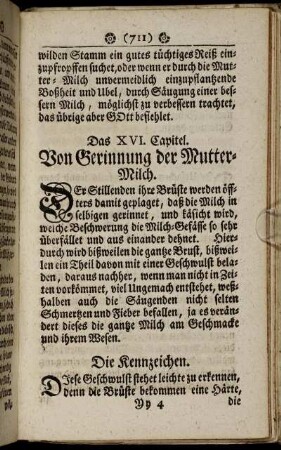 (711)
wilden Stamm ein gutes tüchtiges Reiß ein-
zupfropffen suchet, oder wenn er durch die Mut-
ter-Milch unvermeidlich einzupflantzende
Boßheit und Ubel, durch Säugung einer bes-
sern Milch, möglichst zu verbessern trachtet,
das übrige aber GOtt befiehlet.
Das XVI. Capitel.
Von Gerinnung der Mutter-
Milch.
DEr Stillenden ihre Brüste werden öff-
ters damit geplaget, daß die Milch in
selbigen gerinnet, und käsicht wird,
welche Beschwerung die Milch-Gefässe so sehr
überfället und aus einander dehnet. Hier-
durch wird bißweilen die gantze Brust, bißwei-
len ein Theil davon mit einer Geschwulst bela-
den, daraus nachher, wenn man nicht in Zei-
ten vorkömmet, viel Ungemach entstehet, weß-
halben auch die Säugenden nicht selten
Schmertzen und Fieber befallen, ja es verän-
dert dieses die gantze Milch am Geschmacke
und ihrem Wesen.
Die Kennzeichen.
DIese Geschwulst stehet leichte zu erkennen,
denn die Brüste bekommen eine Härte,
Yy 4 die